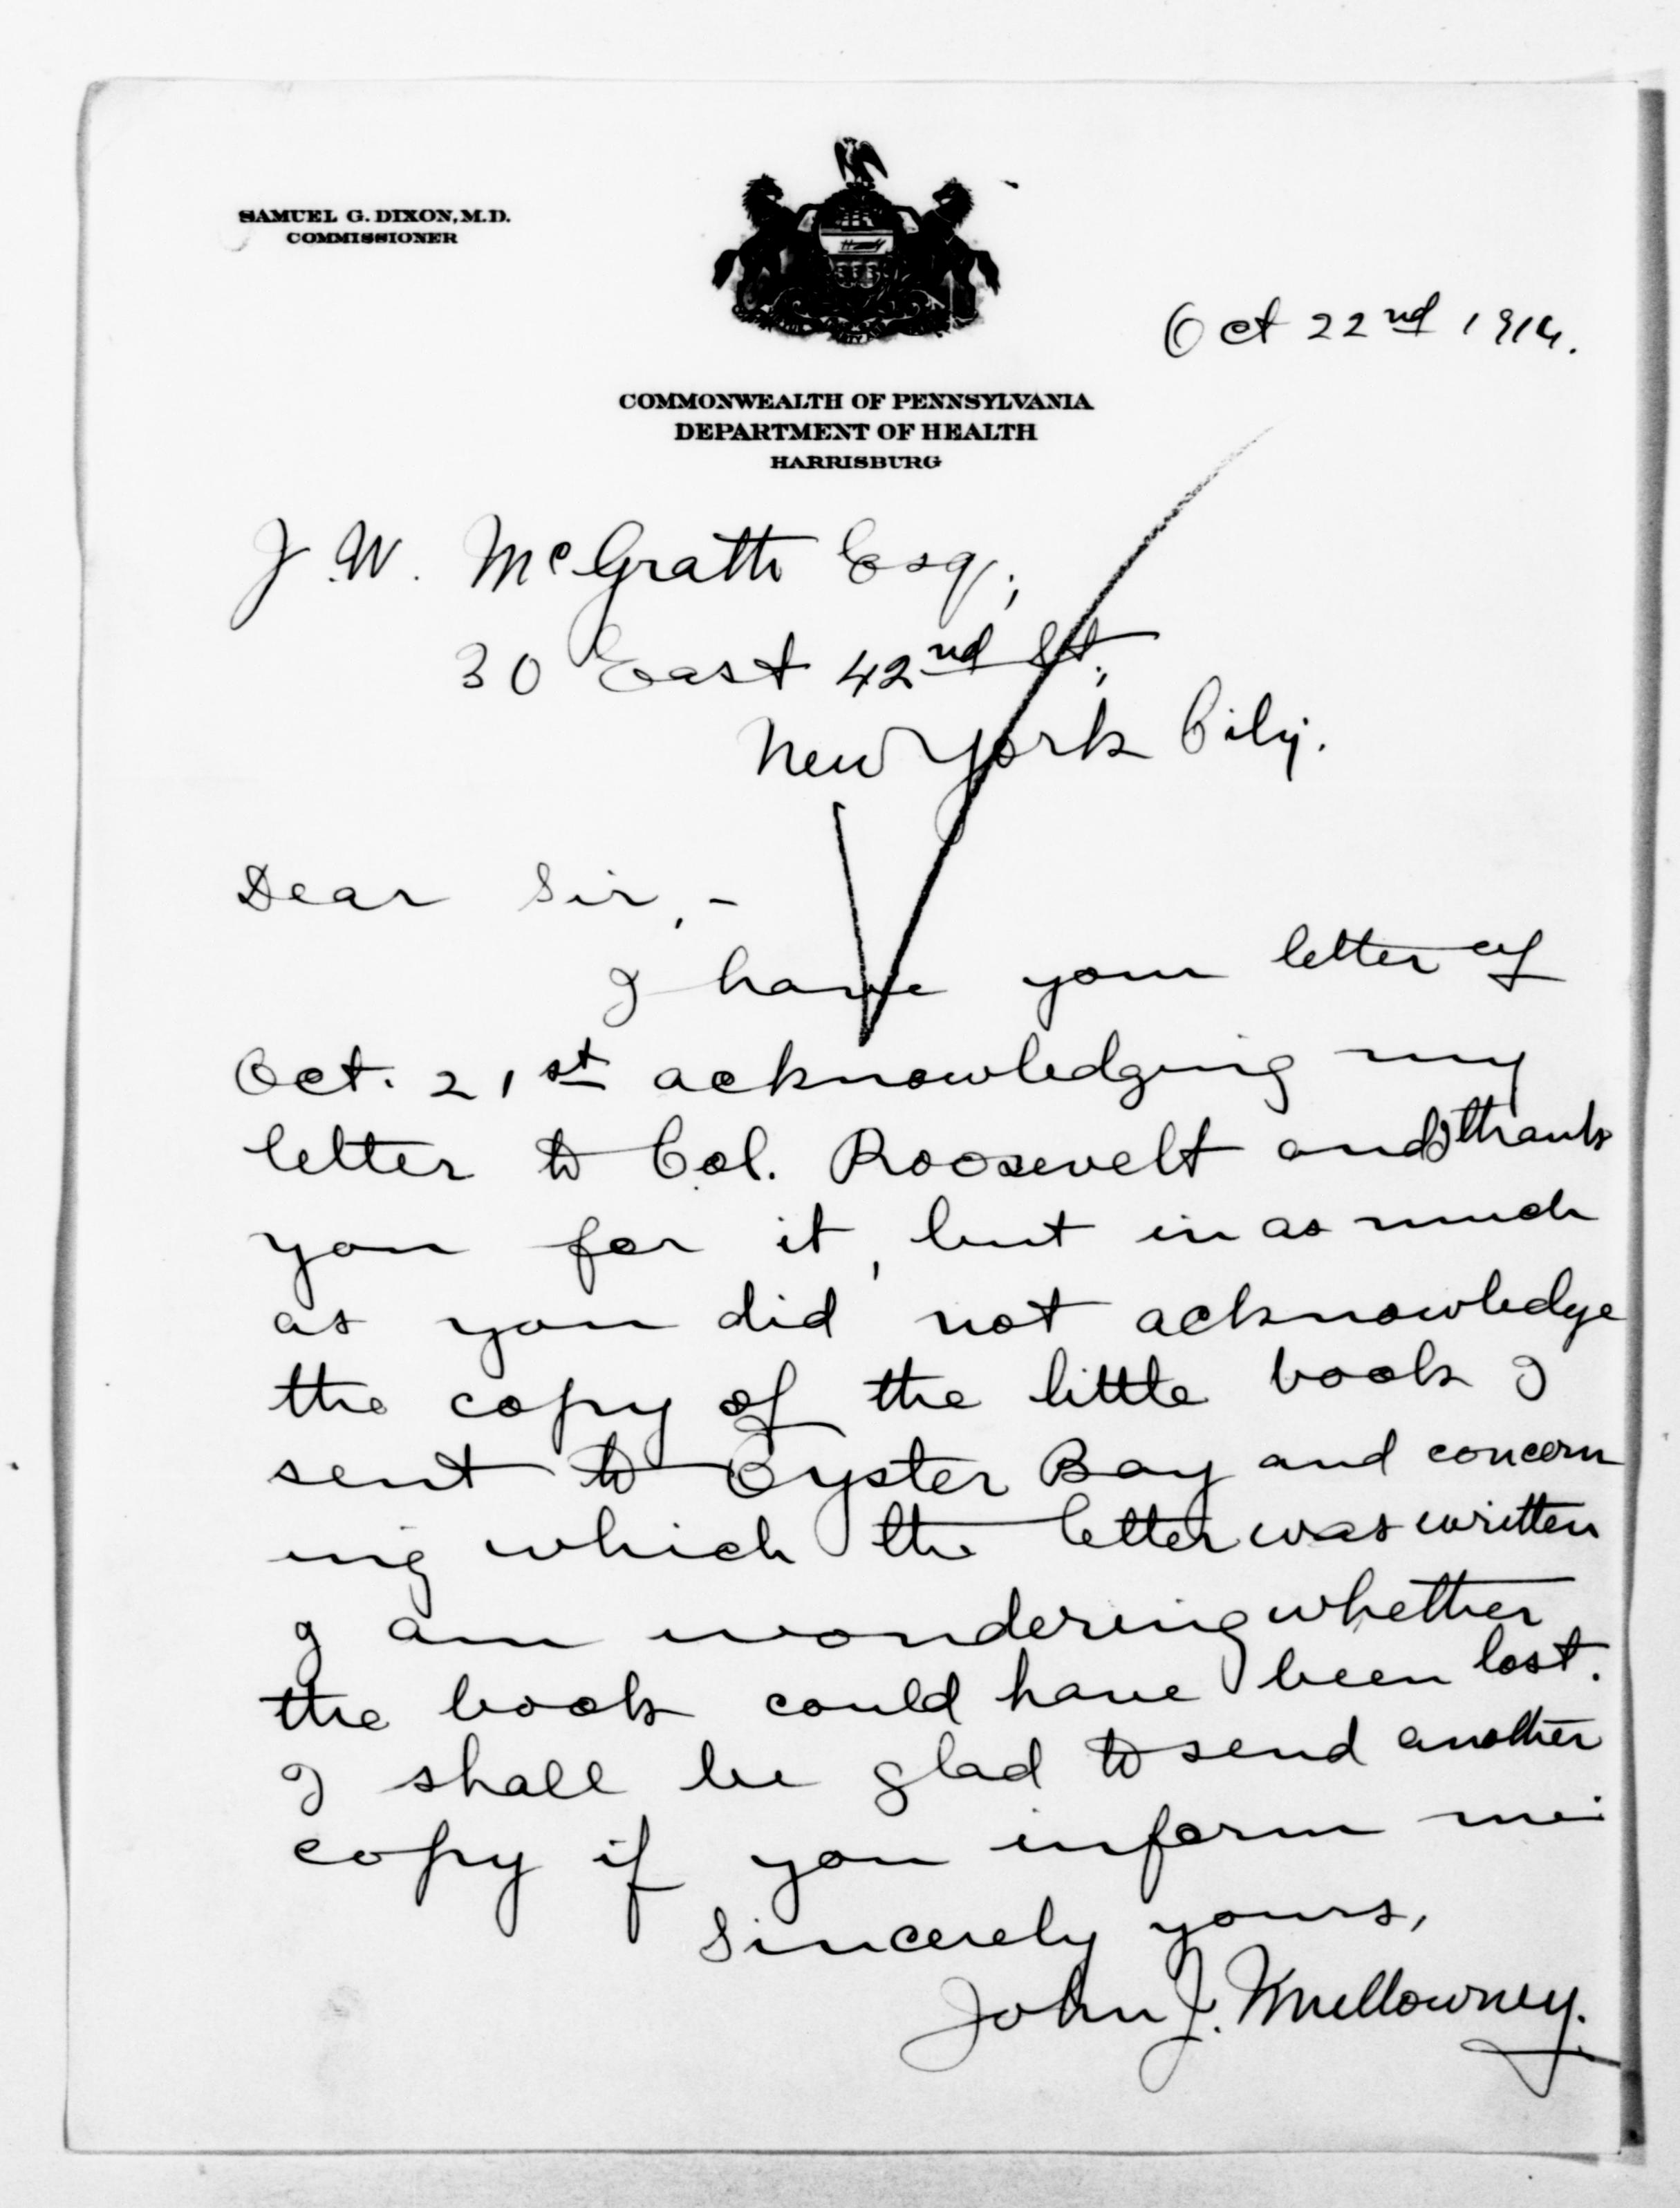 SAMUEL G. DIXON, M.D.
COMMISSIONER
Oct 22nd 1914.
COMMONWEALTH OF PENNSYLVANIA
DEPARTMENT OF HEALTH
HARRISBURG
J. W. McGrath Esq.,
30 East 42nd St.,
New York City.
Dear Sir,-
I have your letter of
Oct. 21st acknowledging my
letter to Col. Roosevelt and thank
you for it, but in as much
as you did not acknowledge
the copy of the little book I
sent to Oyster Bay and concern
ing which the letter was written
I am wondering whether
the book could have been lost.
I shall be glad to send another
copy if you inform me.
Sincerely yours,
John J. Mullowney.